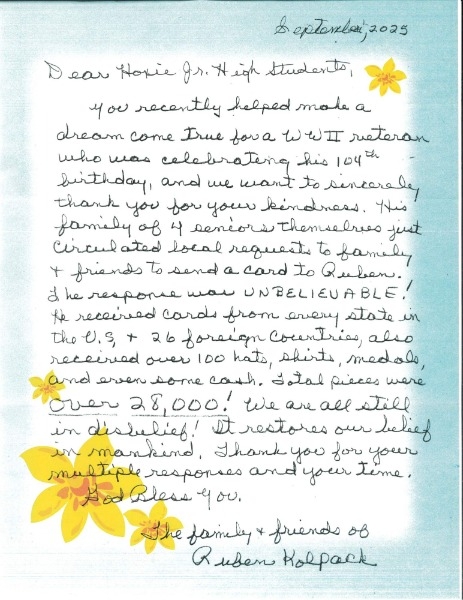 September, 2025
Dear Hoxie Jr. High Students,
You recently helped made a
dream come true for a WWII veteran
who was celebrating his 104th
birthday, and we want to sincerely
thank you for your kindness. His
family of 4 seniors themselves just
circulated local requests to family
& friends to send a card to Ruben.
The response was UNBELIEVABLE!
He received cards from every state in
the U.S. & 26 foreign countries, also
received over 100 hats, shirts, medals,
and even some cash. Total pieces were
over 28,000! We are all still
in disbelief! It restores our belief
in mankind. Thank you for your
multiple responses and your time.
God Bless You.
The family & friends of
Ruben Kolpack